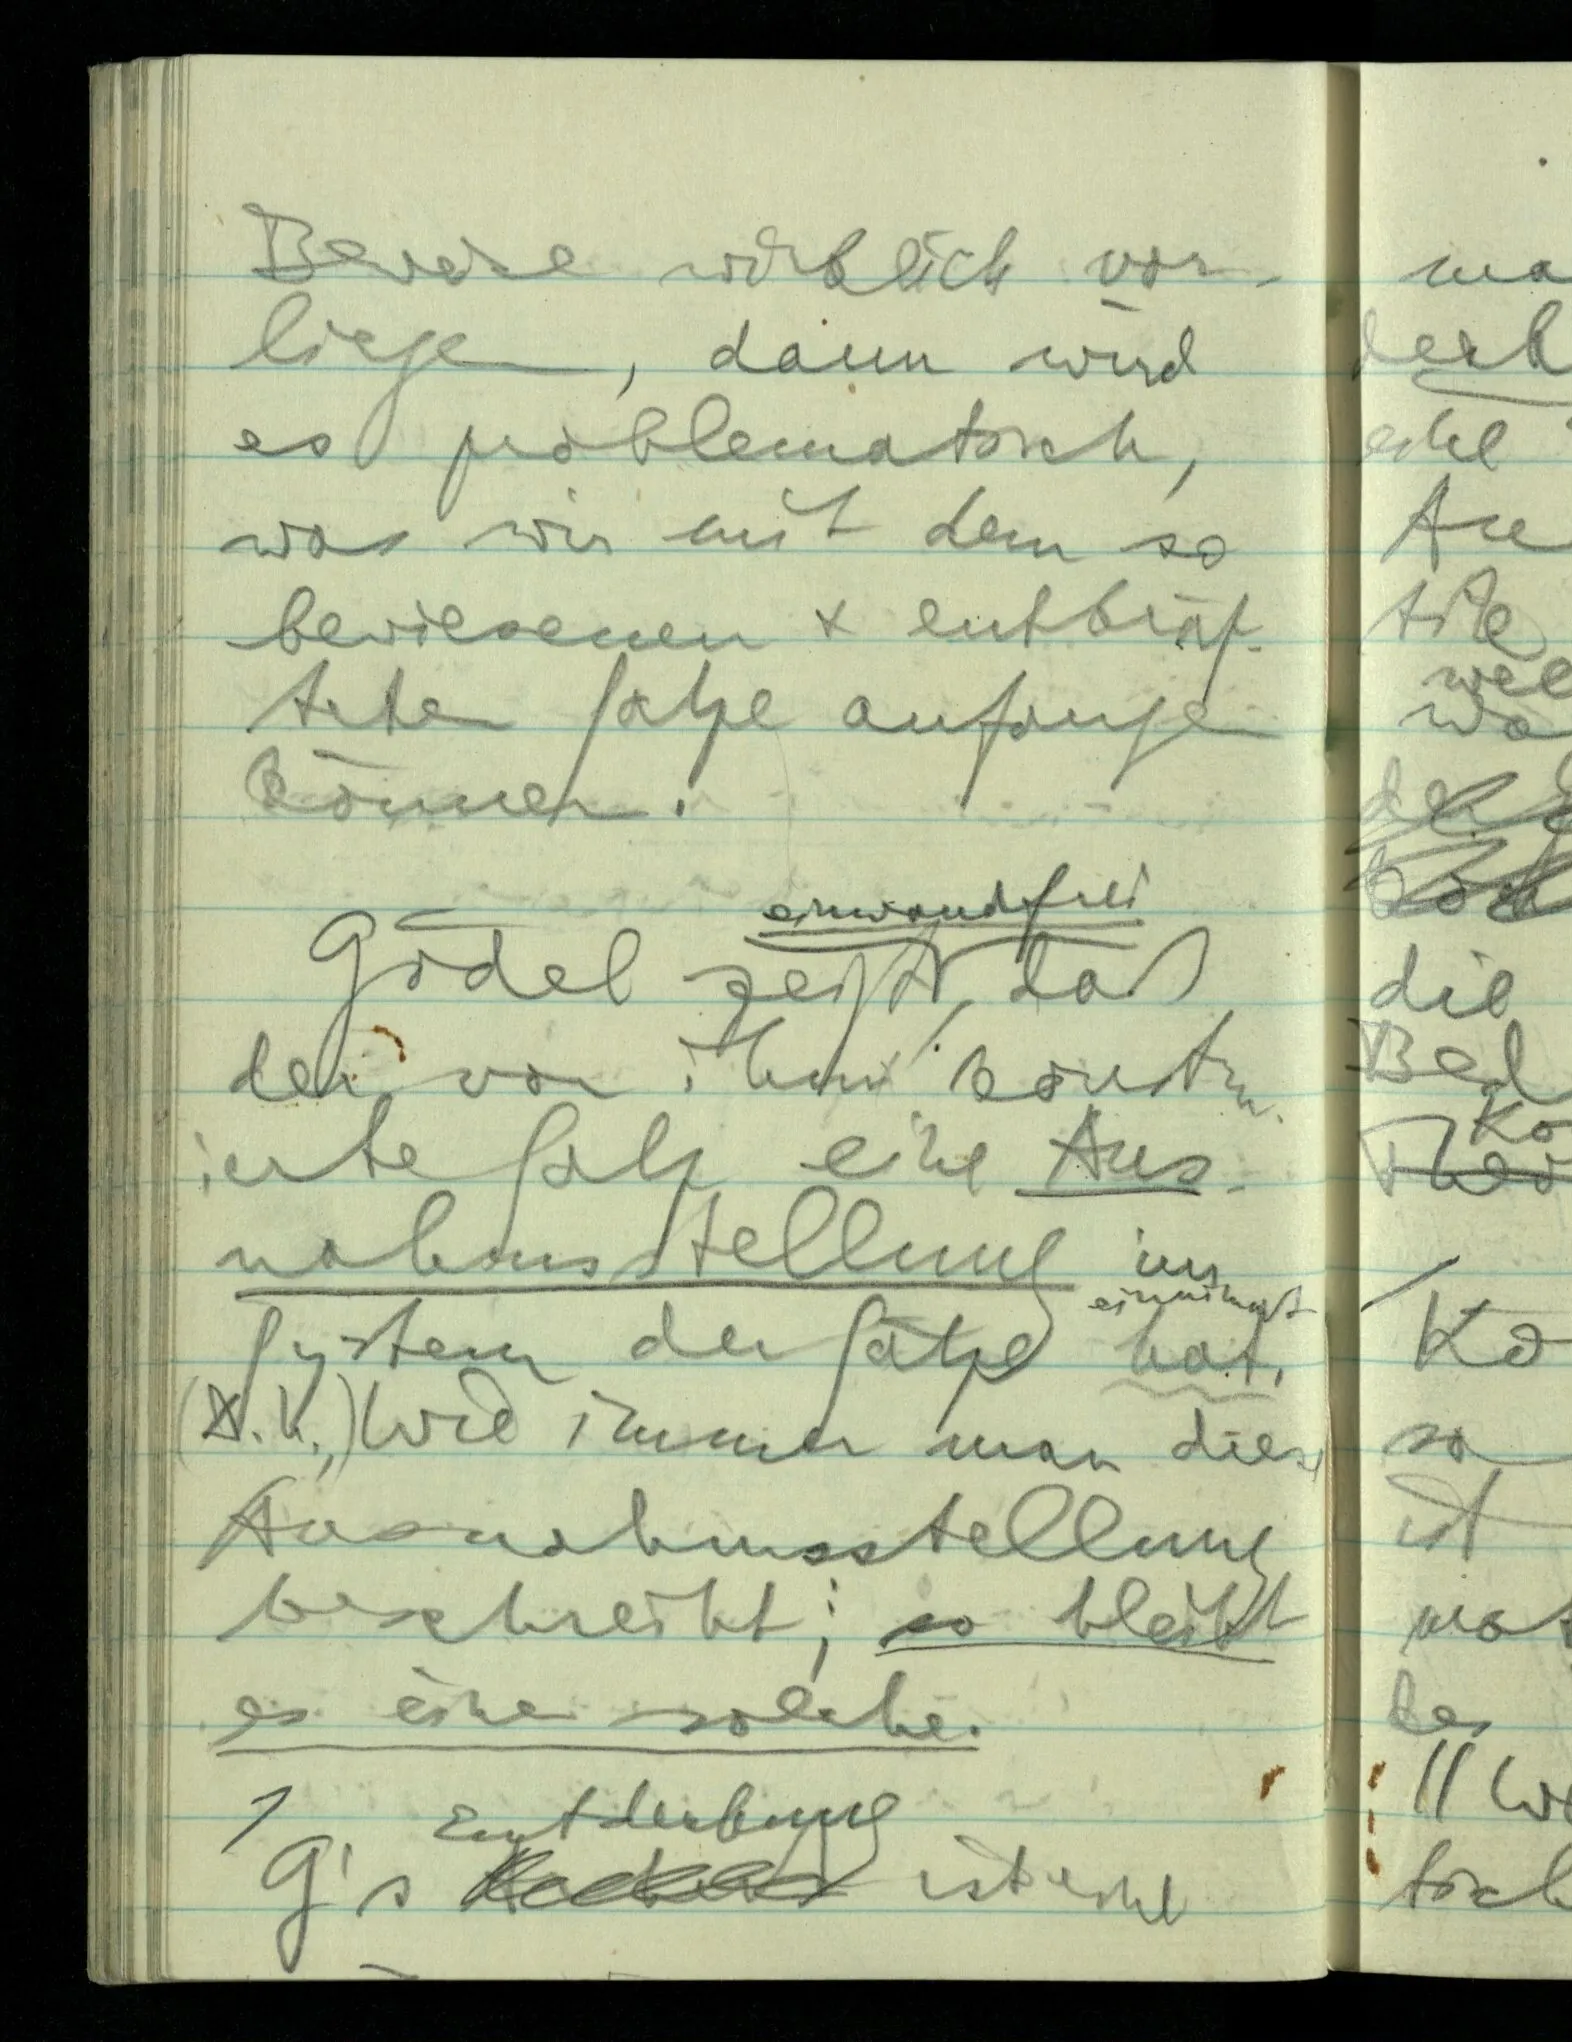 Beweise wirklich vor-
liegen, dann wird
es problematisch,
was wir mit dem so
bewiesenen + entkräf-
teten Satze anfangen
können.
einwandfrei
Gödel zeigt, daß
der von ihm konstru-
ierte Satz eine Aus-
nahmsstellung im
einnimmt
System der Sätze hat.
(D.h.,) Wie immer man diese
Ausnahmsstellung
beschreibt; so bleibt
es eine solche.
/ Entdeckung
G's ist eine
ma
derh
eine
tile
wa
die
Bed
Ko
Ko
so
ist
mat
des
// We
tisch